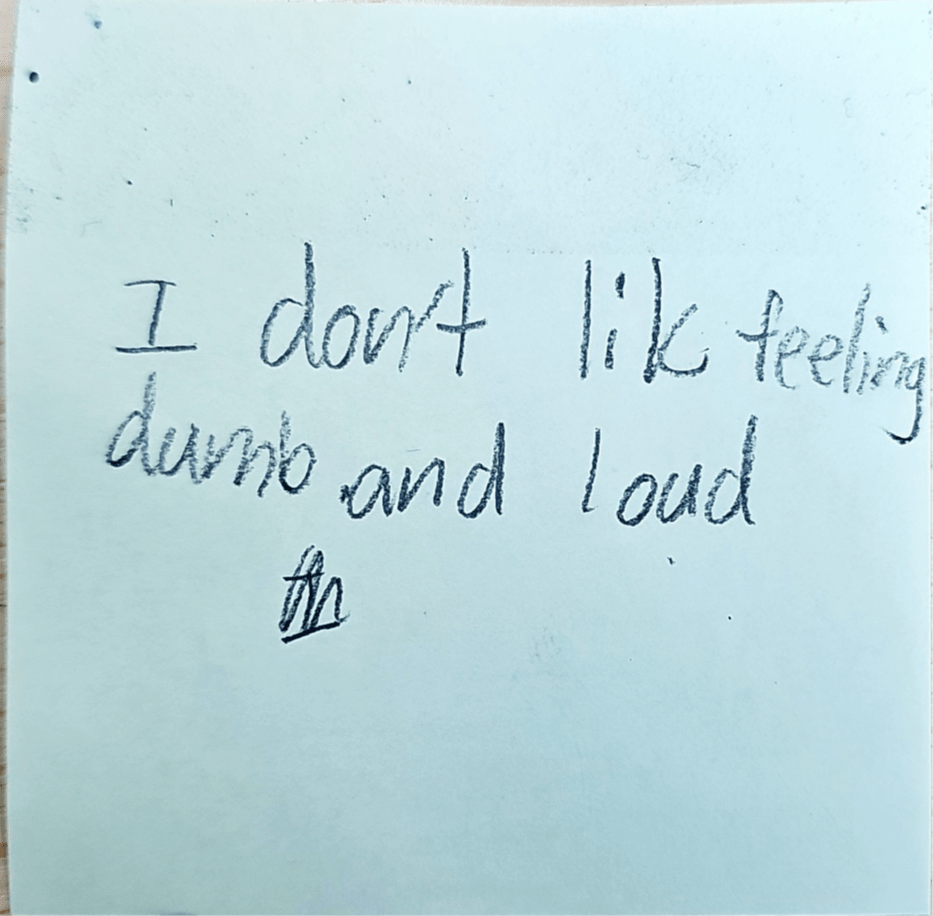 I don't lik feeling
dumb and loud